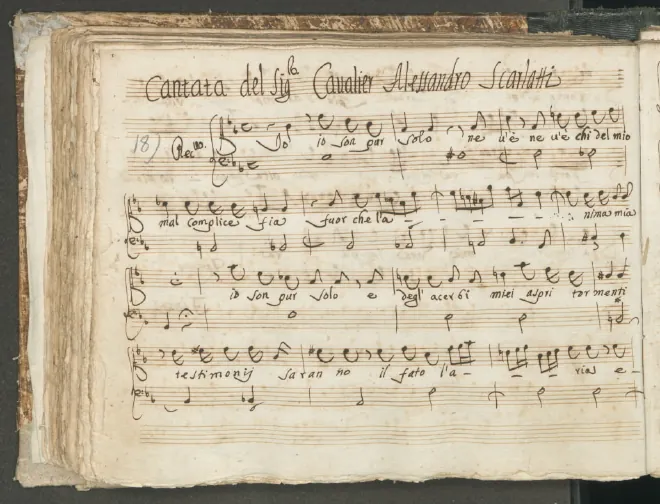 Cantata del Sigra Cavalier Alessandro Scarlatti
18)
Recvo.
So' io son pur solo ne v'è ne v'è chi del mio
mal complice sia fuor che l'a - - - - - nima mia
io son pur solo e degl' acerbi miei aspri tormenti
testimonij saranno il fato l'a - - - ria e -